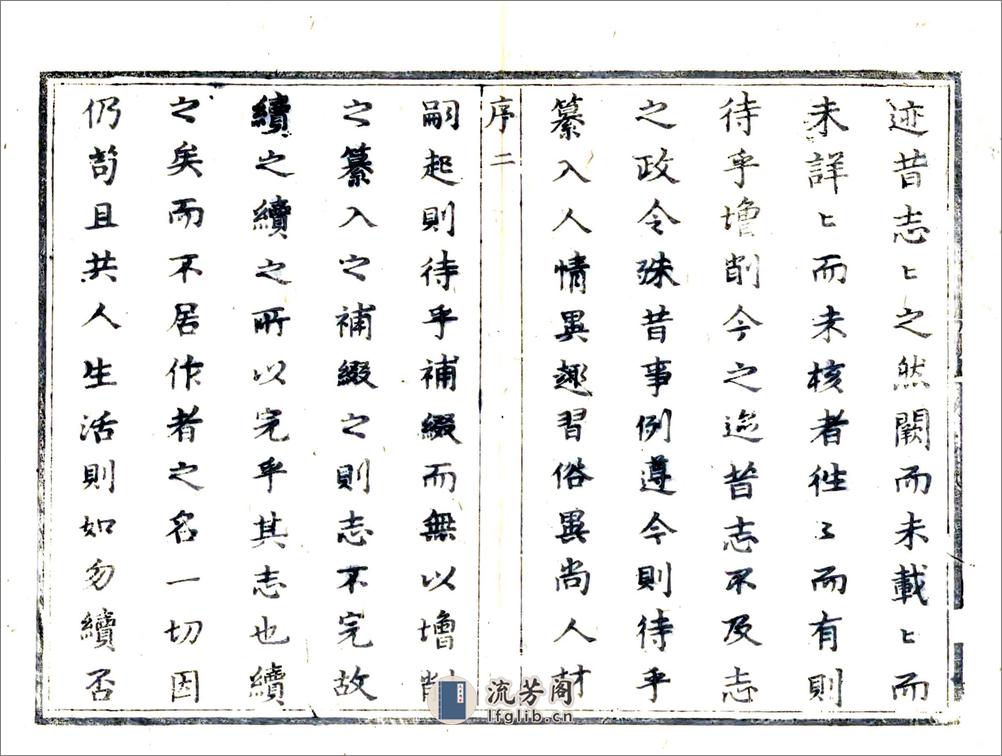 迹昔志〻之然闕而未載〻而
未詳〻而未核者徃〻而有則
待乎增削今之迹昔志不及志
之政令殊昔事例遵今則待乎
纂入人情異趣習俗異尚人材
序二
嗣起則待乎補綴而無以增削
之纂入之補綴之則志不完故
續之續之所以完乎其志也續
之矣而不居作者之名一切因
仍苟且共人生活則如勿續否
流芳阁
lfglib.cn